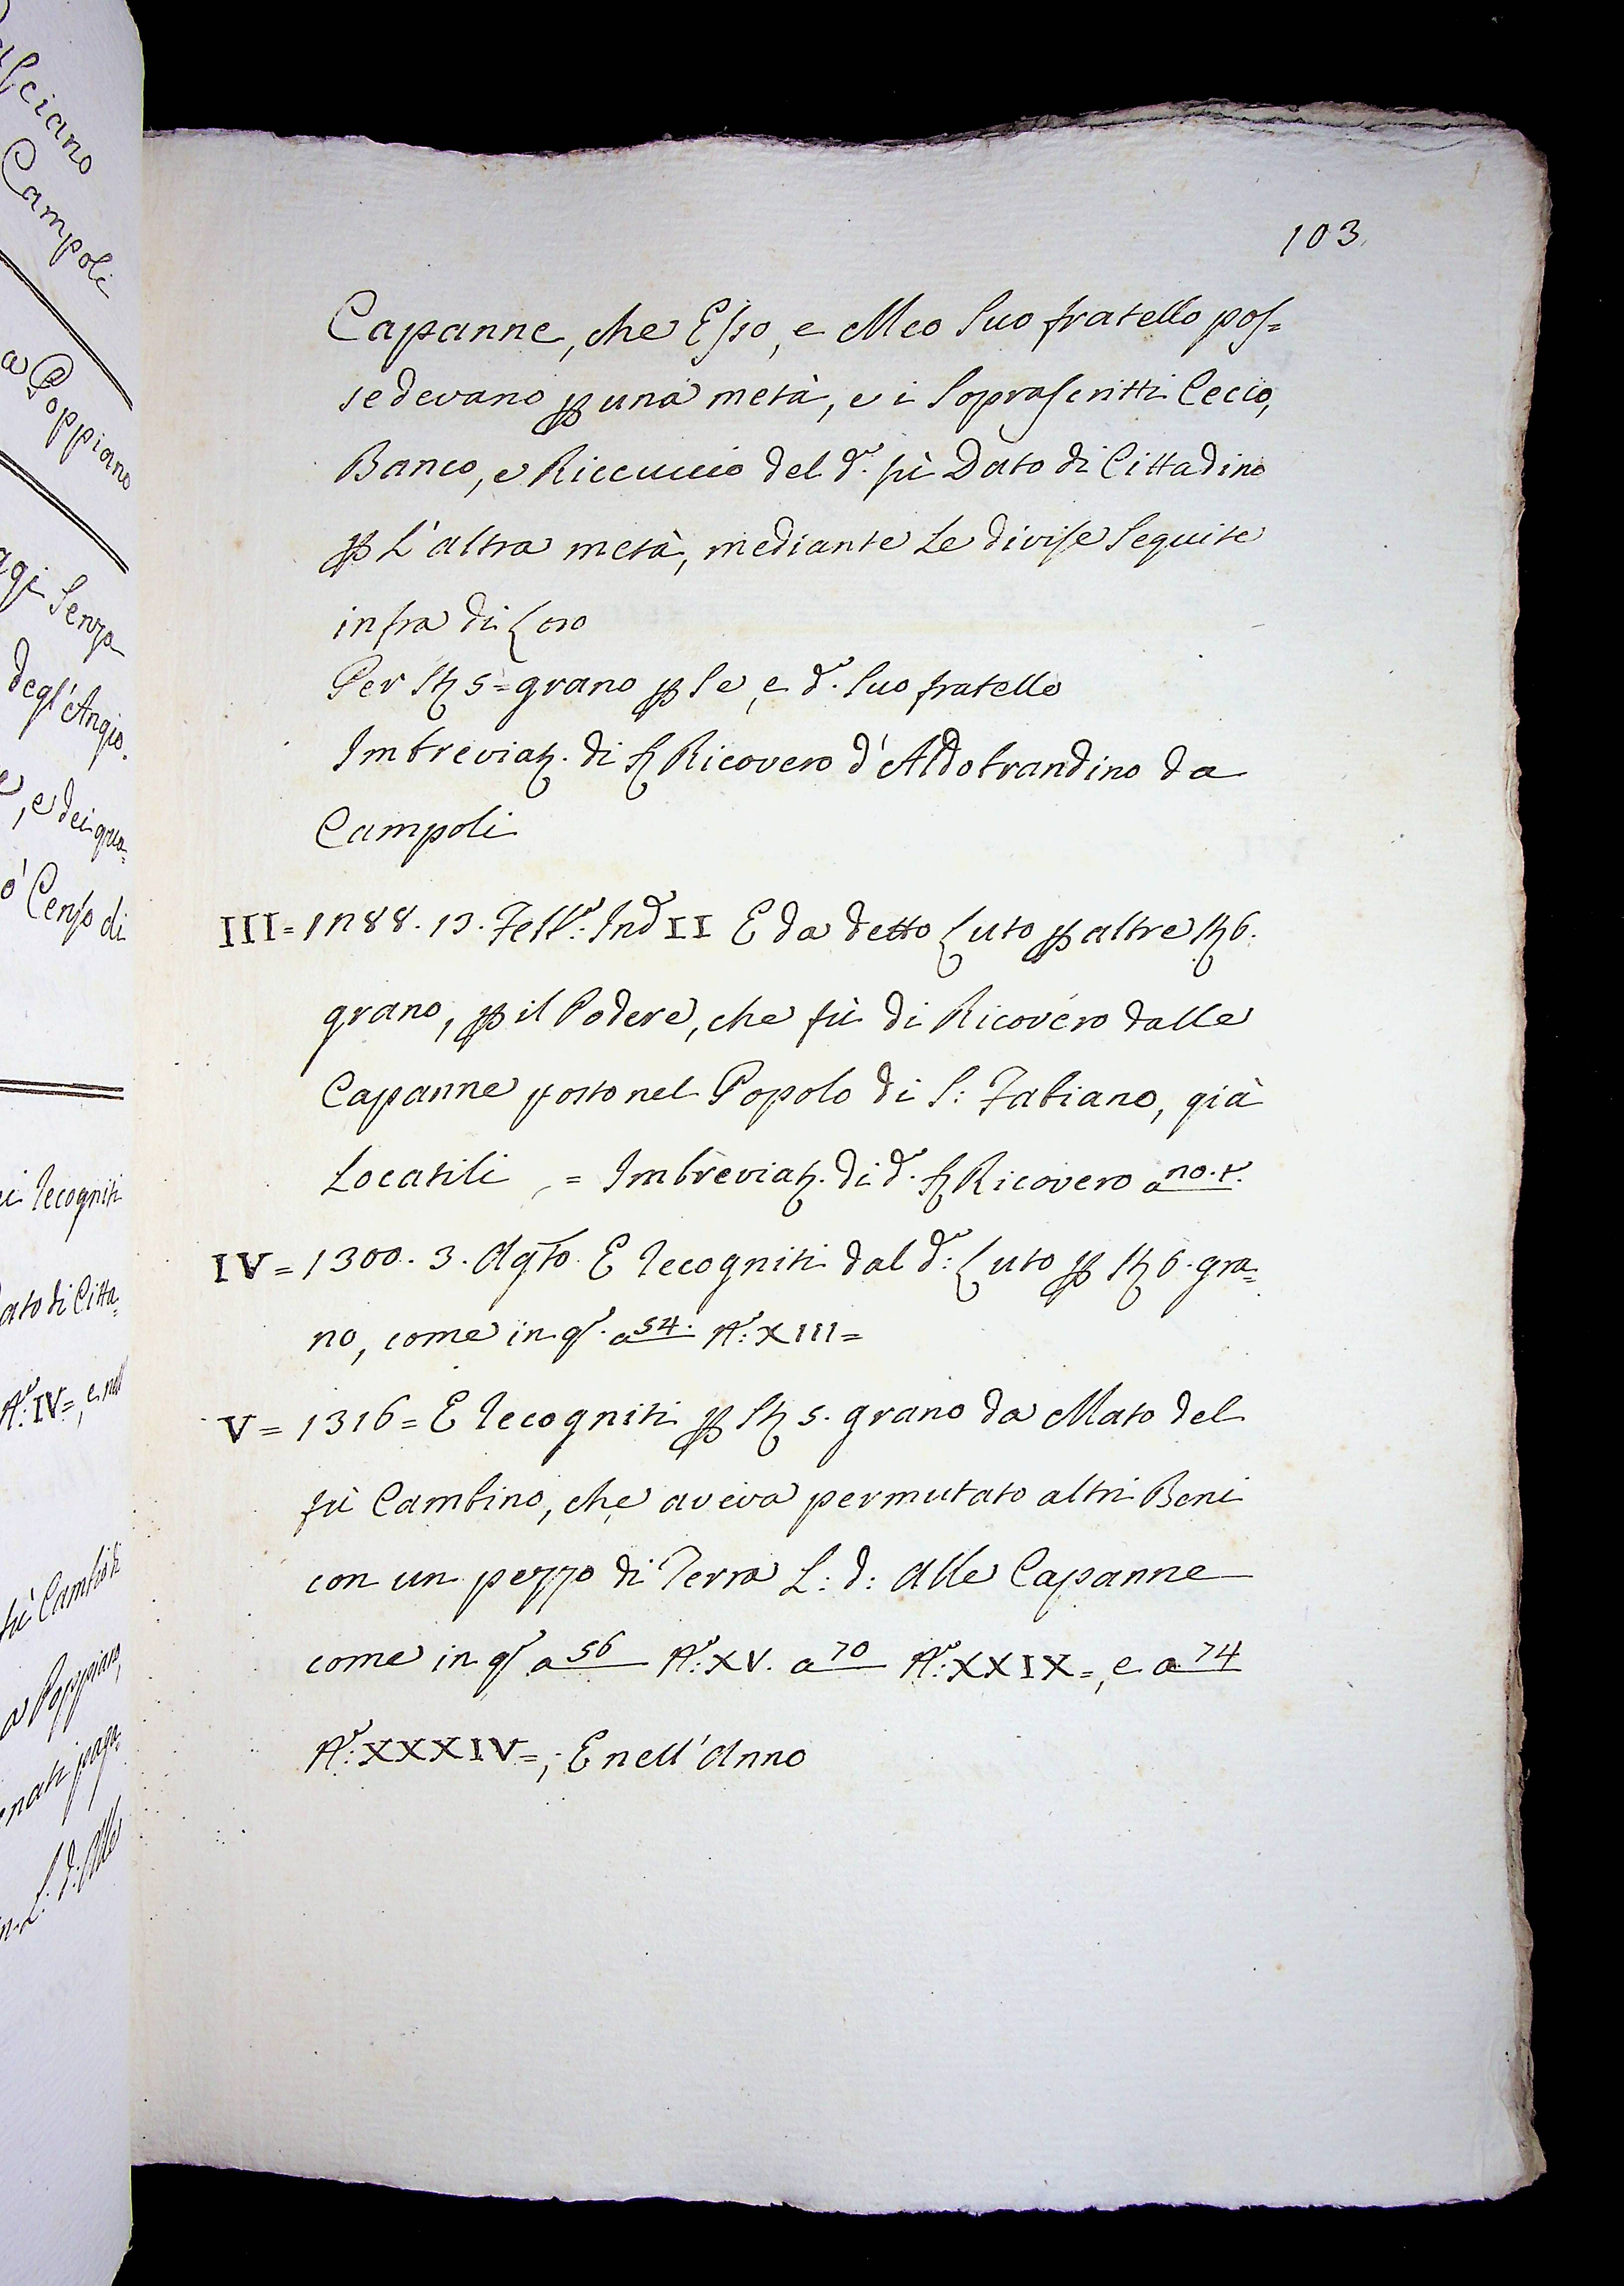 sciano
Campoli
a Poppiano
agi Senza
degl' Angio.
e, e dei qua=
o' Censo di
ei recogniti
Dato di Citta=
Nº: IV=, e nell
fù Cambio di
a Poppiano,
L: d: Alle
103.
Capanne, che Esso, e Meo Suo fratello pos=
sedevano p una metà, e i Soprascritti Cecco,
Banco, e Riccuccio del dº. fù Dato di Cittadino
p L'altra metà, mediante Le divise Seguite
infra di Loro
Per Sta 5= grano p Se, e dº. Suo fratello
Imbreviaz. di S Ricovero d'Aldobrandino da
Campoli
III= 1288. 13. Febbº: Indº II E da detto Luto p altre Sta 6.
grano, p il Podere, che fù di Ricovero dalle
Capanne posto nel Popolo di S: Fabiano, già
Locatili = Imbreviaz. di dº. S Ricovero a no. t.
IV= 1300. 3. Agto. E recogniti dal dº: Luto p Sta 6. gra=
no, come in qº. a 54. Nº: XIII=
V= 1316= E recogniti p Sta 5. grano da Mato del
fù Cambino, che aveva permutato altri Beni
con un pezzo di Terra L: d: Alle Capanne
come in qº a 56 Nº: XV. a 70 Nº: XXIX=, e a 74
Nº: XXXIV=; E nell' Anno